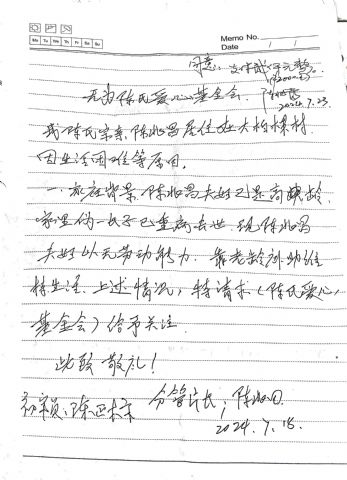 Memo No.
Mo Tu We Th Fr Sa Su
Date / /
同意:
2024.7.23
无为陈氏爱心基金会.
我陈氏宗亲,陈兆昌居住在大构棵村
因生活困难等原因.
一.家庭背景,陈兆昌夫妇已是高龄
家里伪一长子已重病去世.现陈兆昌
夫妇以无劳动能力.靠老龄补助维
持生活.上述情况,特请求(陈氏爱心
基金会)给予关注.
此致 敬礼!
分管片长;陈兆
2024.7.15.